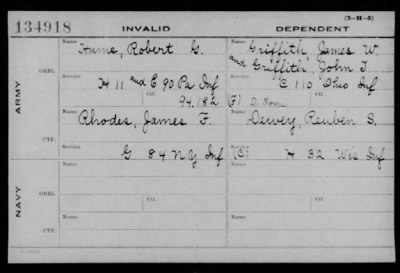 (3-H-5)
134918 INVALID DEPENDENT
Name Name
Hume, Robert G. Griffith James W.
and Griffith, John T.
ORIG. Service Service
H 11 and E 90 Pa Inf C 110 Ohio Inf
Ctf. Ctf.
94,182 (F) 2 Son
ARMY
Name Name
Rhodes, James F. Dewey, Reuben S.
CTF. Service Service
G 84 N Y Inf (C) H 32 Wis Inf
Name Name
ORIG. Service Service
Ctf. Ctf.
NAVY
Name Name
CTF. Service Service